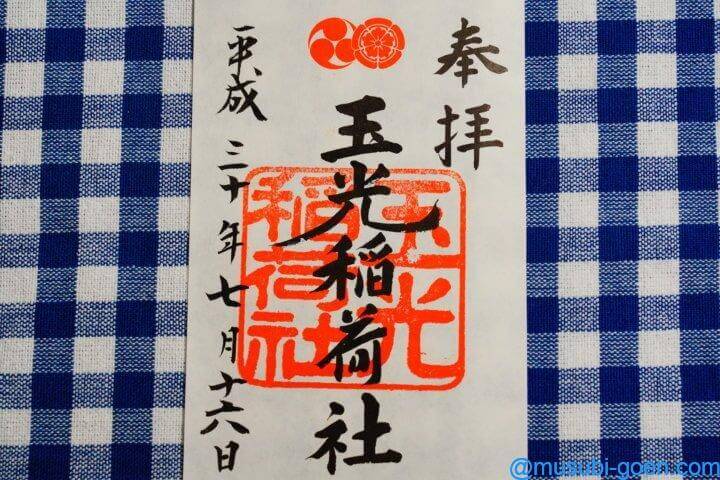 奉拝
玉光稲荷社
玉光
稲荷社
平成三十年七月十六日
@musubi-goen.com